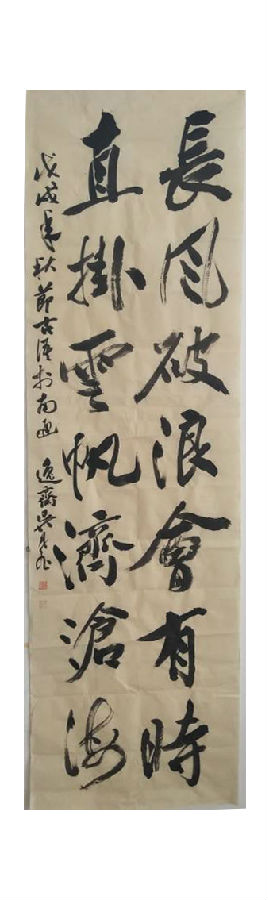 長風破浪會有時
直掛雲帆濟滄海
戊戌年秋節古漢於南逸齋